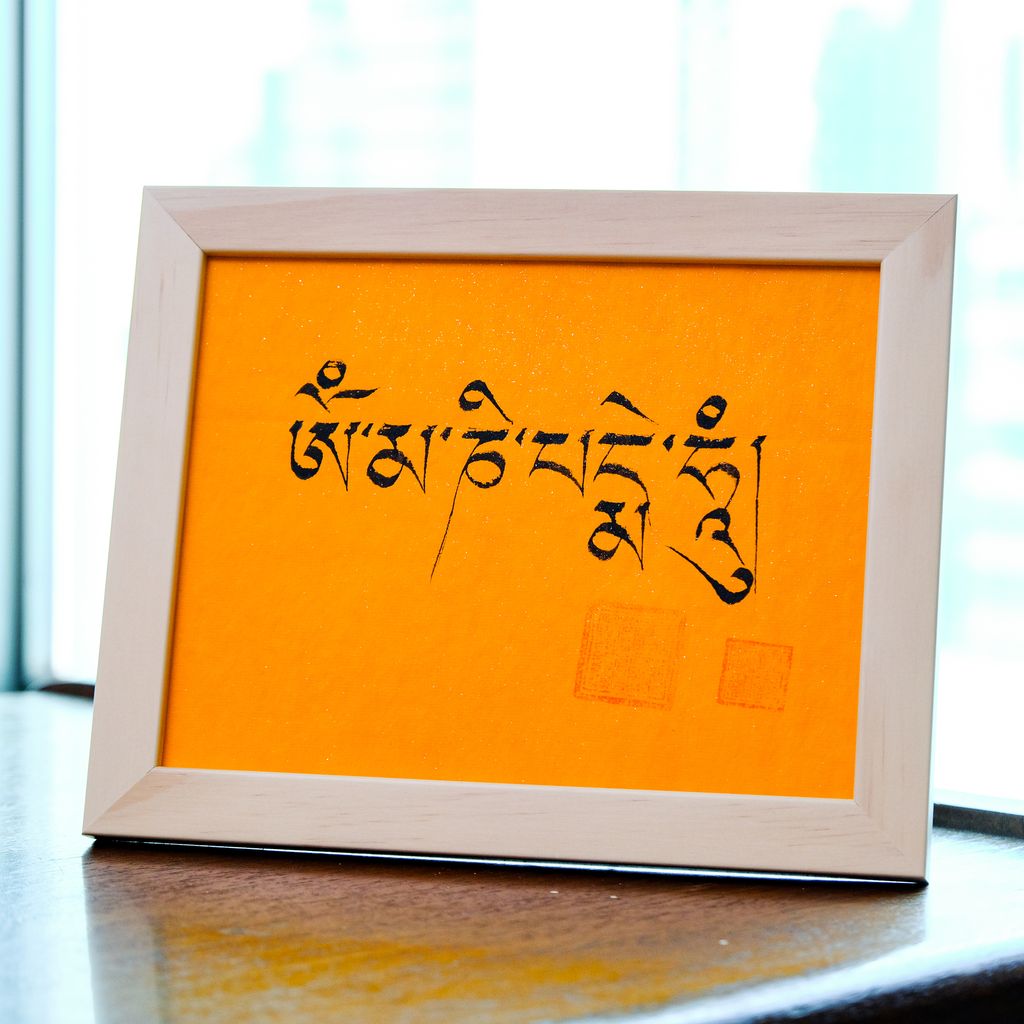 ཨོཾ་མ་ཎི་པདྨེ་ཧཱུཾ།